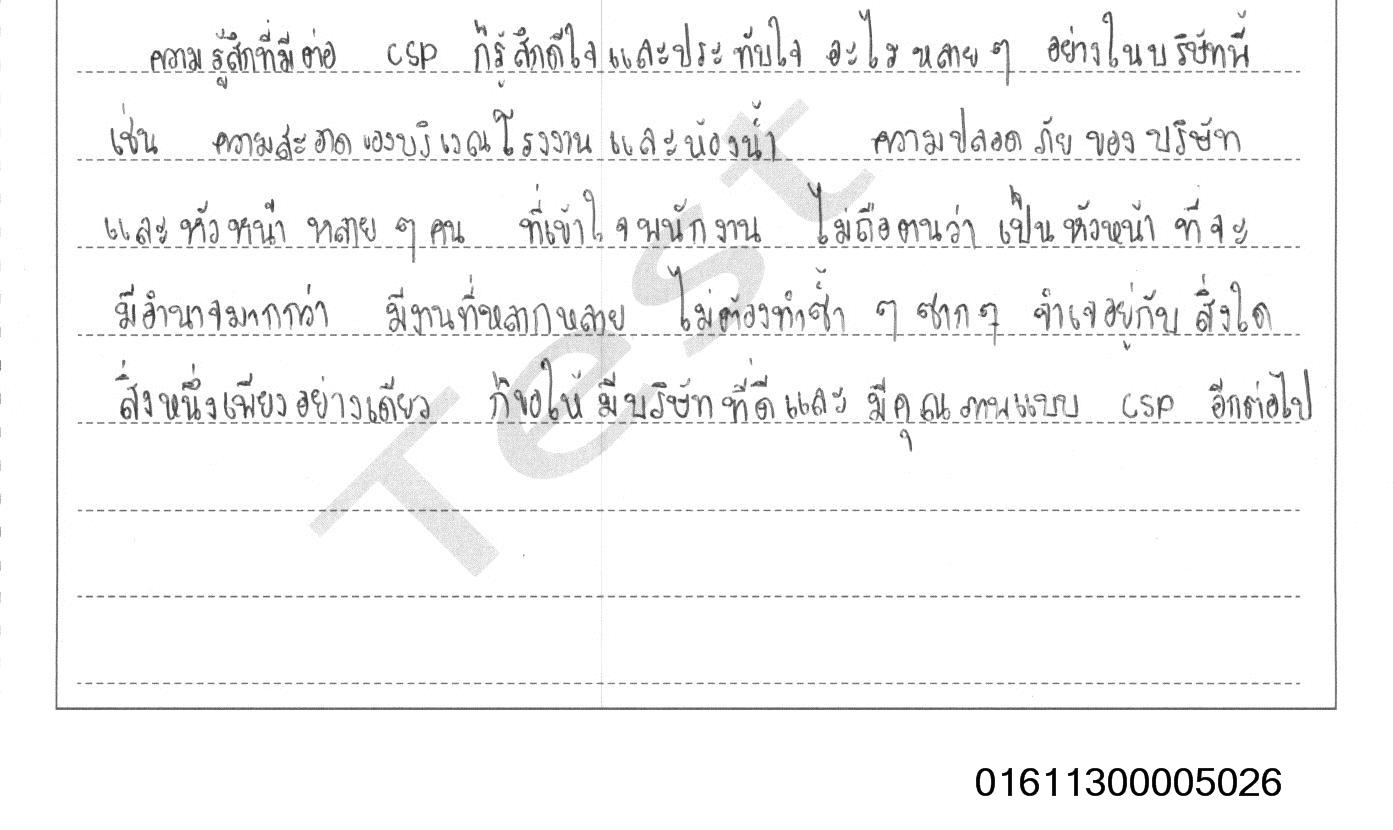 ความรู้สึกที่มีต่อ CSP ก็รู้สึกดีใจและประทับใจ อะไรหลายๆ อย่างในบริษัทนี้
เช่น ความสะอาดของบริเวณโรงงานและห้องน้ำ ความปลอดภัยของบริษัท
และหัวหน้า หลายๆคน ที่เข้าใจพนักงาน ไม่ถือตนว่า เป็นหัวหน้า ที่จะ
มีอำนาจมากกว่า มีงานที่หลากหลาย ไม่ต้องทำซ้ำ ๆ ซาก ๆ จำเจอยู่กับ สิ่งใด
สิ่งหนึ่งเพียงอย่างเดียว ก็ขอให้ มีบริษัทที่ดีและ มีคุณภาพแบบ CSP อีกต่อไป
Test
01611300005026